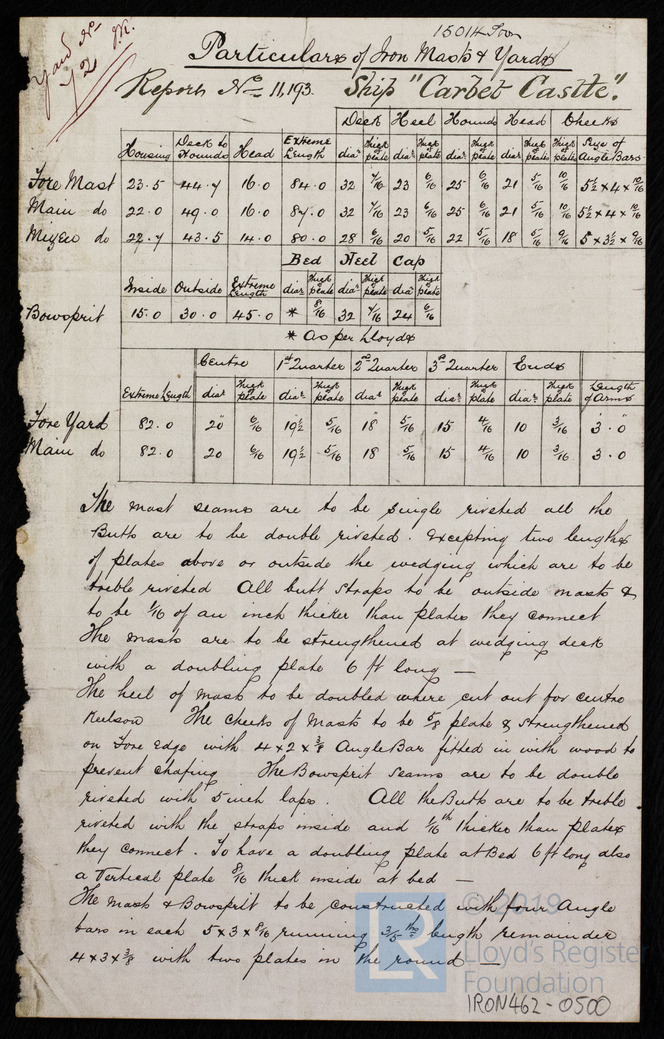 Yard No
72 
15014 Iron
Particulars of Iron Masts & Yards
Report No 11,193. Ship "Carbet Castle".
Deck Heel Hounds Head Cheeks
Housing Deck to Hounds Head Extreme Length diar thick plate diar thick plate diar thick plate diar thick plate thick plate Size of Angle Bars
Fore Mast 23.5 44.7 16.0 84.0 32 7/16 23 6/16 25 6/16 21 5/16 10/16 5½ x 4 x 10/16
Main do 22.0 49.0 16.0 87.0 32 7/16 23 6/16 25 6/16 21 5/16 10/16 5½ x 4 x 10/16
Mizen do 22.7 43.5 14.0 80.0 28 6/16 20 5/16 22 5/16 18 5/16 9/16 5 x 3½ x 9/16
Bed Heel Cap
Inside Outside Extreme Length diar thick plate diar thick plate diar thick plate
Bowsprit 15.0 30.0 45.0 * 8/16 32 7/16 24 6/16
* As per Lloyds
Centre 1st Quarter 2nd Quarter 3rd Quarter Ends
Extreme Length diar thick plate diar thick plate diar thick plate diar thick plate diar thick plate Length of Arms
Fore Yard 82.0 20" 6/16 19½ 5/16 18" 5/16 15 4/16 10 3/16 3.0
Main do 82.0 20 6/16 19½ 5/16 18 5/16 15 4/16 10 3/16 3.0
The mast seams are to be single riveted all the
Butts are to be double riveted. Excepting two lengths
of plates above or outside the wedging which are to be
treble riveted All butt straps to be outside masts &
to be 1/16 of an inch thicker than plates they connect
The masts are to be strengthened at wedging deck
with a doubling plate 6 ft long —
The heel of masts to be doubled where cut out for centre
Keelson The cheeks of Masts to be 5/8 plate & strengthened
on Fore Edge with 4 x 2 x 3/8 Angle Bar fitted in with wood to
prevent chafing The Bowsprit seams are to be double
riveted with 5 inch laps. All the Butts are to be treble
riveted with the straps inside and 1/16th thicker than plates
they connect. To have a doubling plate at Bed 6 ft long also
a Vertical plate 8/16 thick inside at bed —
The masts & Bowsprit to be constructed with four Angle
bars in each 5 x 3 x 8/16 running 3/5ths length remainder
4 x 3 x 3/8 with two plates in the round —
© 2019
LR
Lloyd's Register
Foundation
IRON462-0500